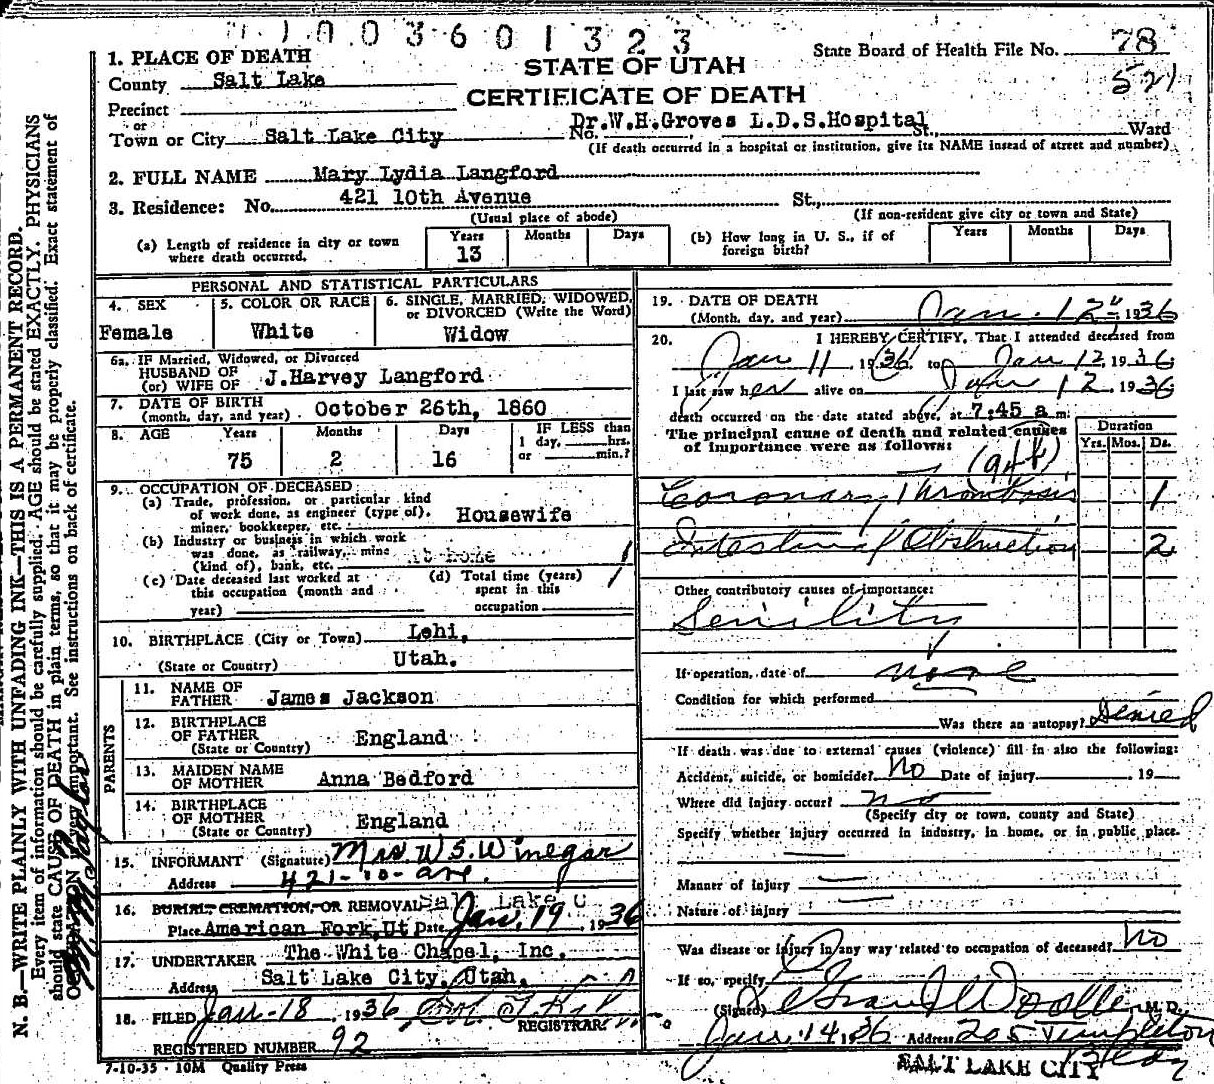 1003601323
State Board of Health File No. 78
521
1. PLACE OF DEATH
STATE OF UTAH
County Salt Lake
CERTIFICATE OF DEATH
Precinct
or
Town or City Salt Lake City No. Dr.W.H.Groves L.D.S.Hospital St., Ward
(If death occurred in a hospital or institution, give its NAME insead of street and number)
2. FULL NAME Mary Lydia Langford
3. Residence: No. 421 10th Avenue St.,
(Usual place of abode) (If non-resident give city or town and State)
(a) Length of residence in city or town where death occurred. Years 13 Months Days
(b) How long in U. S., if of foreign birth? Years Months Days
PERSONAL AND STATISTICAL PARTICULARS
4. SEX Female
5. COLOR OR RACE White
6. SINGLE, MARRIED, WIDOWED, or DIVORCED (Write the Word) Widow
6a. IF Married, Widowed, or Divorced
HUSBAND OF
(or) WIFE OF J.Harvey Langford
7. DATE OF BIRTH
(month, day, and year) October 26th, 1860
8. AGE Years 75 Months 2 Days 16
IF LESS than
1 day, hrs.
or min.?
9. OCCUPATION OF DECEASED
(a) Trade, profession, or particular kind
of work done, as engineer (type of),
miner, bookkeeper, etc. Housewife
(b) Industry or business in which work
was done, as railway, mine
(kind of), bank, etc. At home
(c) Date deceased last worked at
this occupation (month and
year)
(d) Total time (years)
spent in this
occupation
10. BIRTHPLACE (City or Town) Lehi,
(State or Country) Utah.
PARENTS
11. NAME OF FATHER James Jackson
12. BIRTHPLACE OF FATHER
(State or Country) England
13. MAIDEN NAME OF MOTHER Anna Bedford
14. BIRTHPLACE OF MOTHER
(State or Country) England
15. INFORMANT (Signature) Mrs W S. Winegar
Address 421-10-ave.
16. BURIAL, CREMATION, OR REMOVAL Salt Lake C
Place American Fork, Ut Date Jan. 19, 1936
17. UNDERTAKER The White Chapel, Inc.
Address Salt Lake City, Utah.
18. FILED Jan-18, 1936
REGISTRAR
REGISTERED NUMBER 92
7-10-35 - 10M Quality Press
19. DATE OF DEATH
(Month, day, and year) Jan. 12" 1936
20. I HEREBY CERTIFY, That I attended deceased from
Jan 11 1936, to Jan 12, 1936
I last saw her alive on Jan 12, 1936
death occurred on the date stated above, at 7:45 a m.
The principal cause of death and related causes
of importance were as follows:
Duration
Yrs. Mos. Ds.
(94b)
Coronary Thrombosis 1
Intestinal Obstruction 2
Other contributory causes of importance:
Senility
If operation, date of none
Condition for which performed
Was there an autopsy? Denied
If death was due to external causes (violence) fill in also the following:
Accident, suicide, or homicide? No Date of injury , 19
Where did injury occur? no
(Specify city or town, county and State)
Specify whether injury occurred in industry, in home, or in public place.
Manner of injury
Nature of injury
Was disease or injury in any way related to occupation of deceased? No
If so, specify
(Signed) M. D.
Jan. 14 1936 Address 205 Templeton
Bldg
SALT LAKE CITY
N. B.—WRITE PLAINLY WITH UNFADING INK—THIS IS A PERMANENT RECORD.
Every item of information should be carefully supplied. AGE should be stated EXACTLY. PHYSICIANS
should state CAUSE OF DEATH in plain terms, so that it may be properly classified. Exact statement of
OCCUPATION is very important. See instructions on back of certificate.